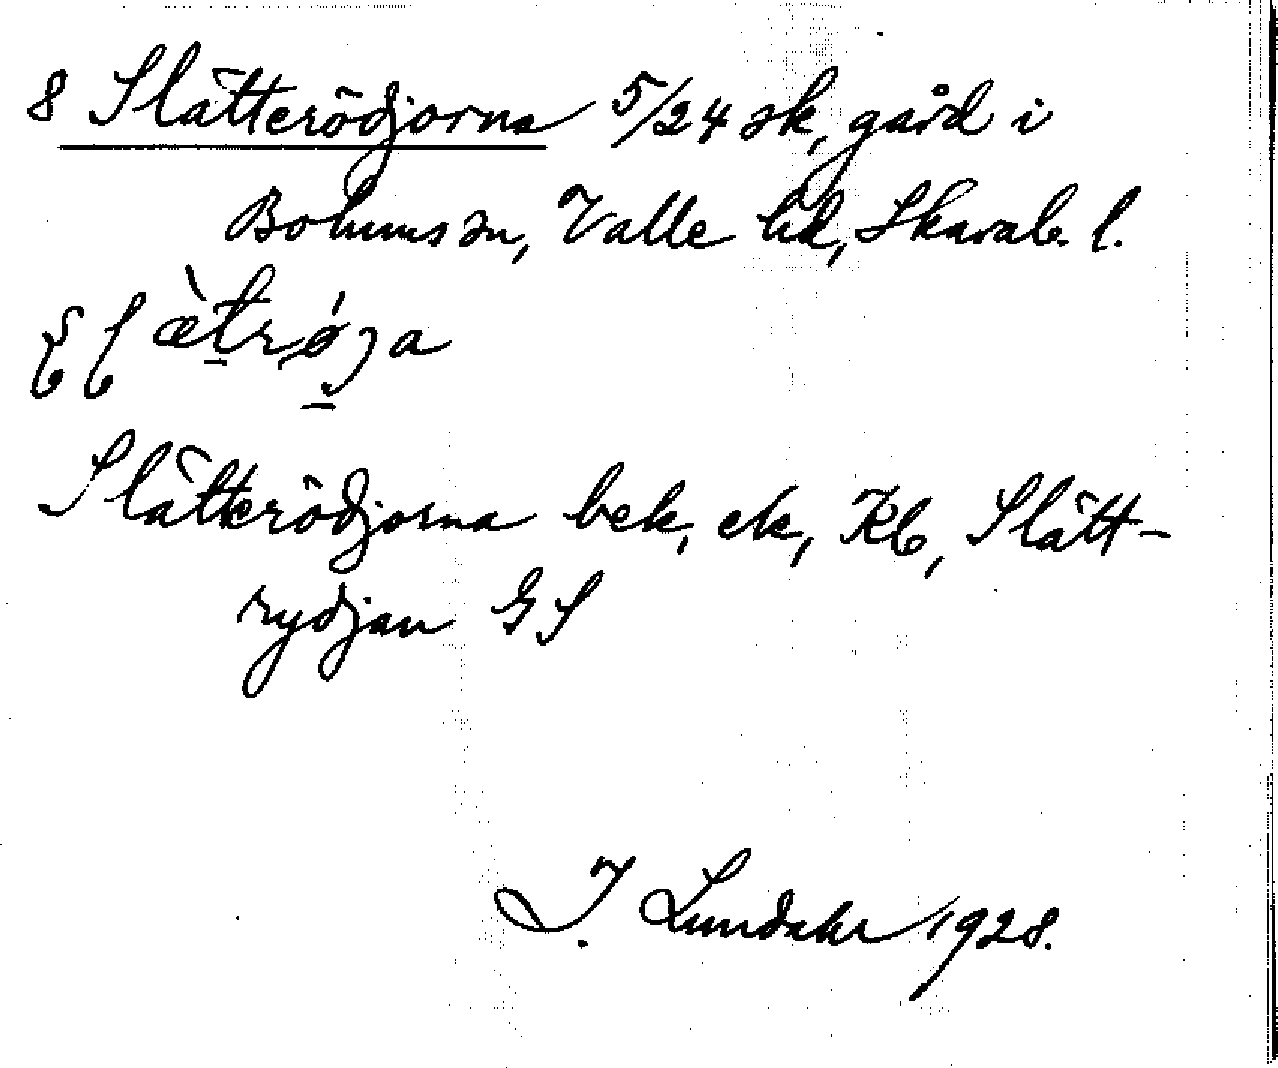 8 Slätterödjorna 5/24 sk, gård i
Bolums sn, Valle hd, Skarab. l.
Slätterödjorna bek, ek, Kb, Slätt-
rydjan GS
I. Lundahl 1928.